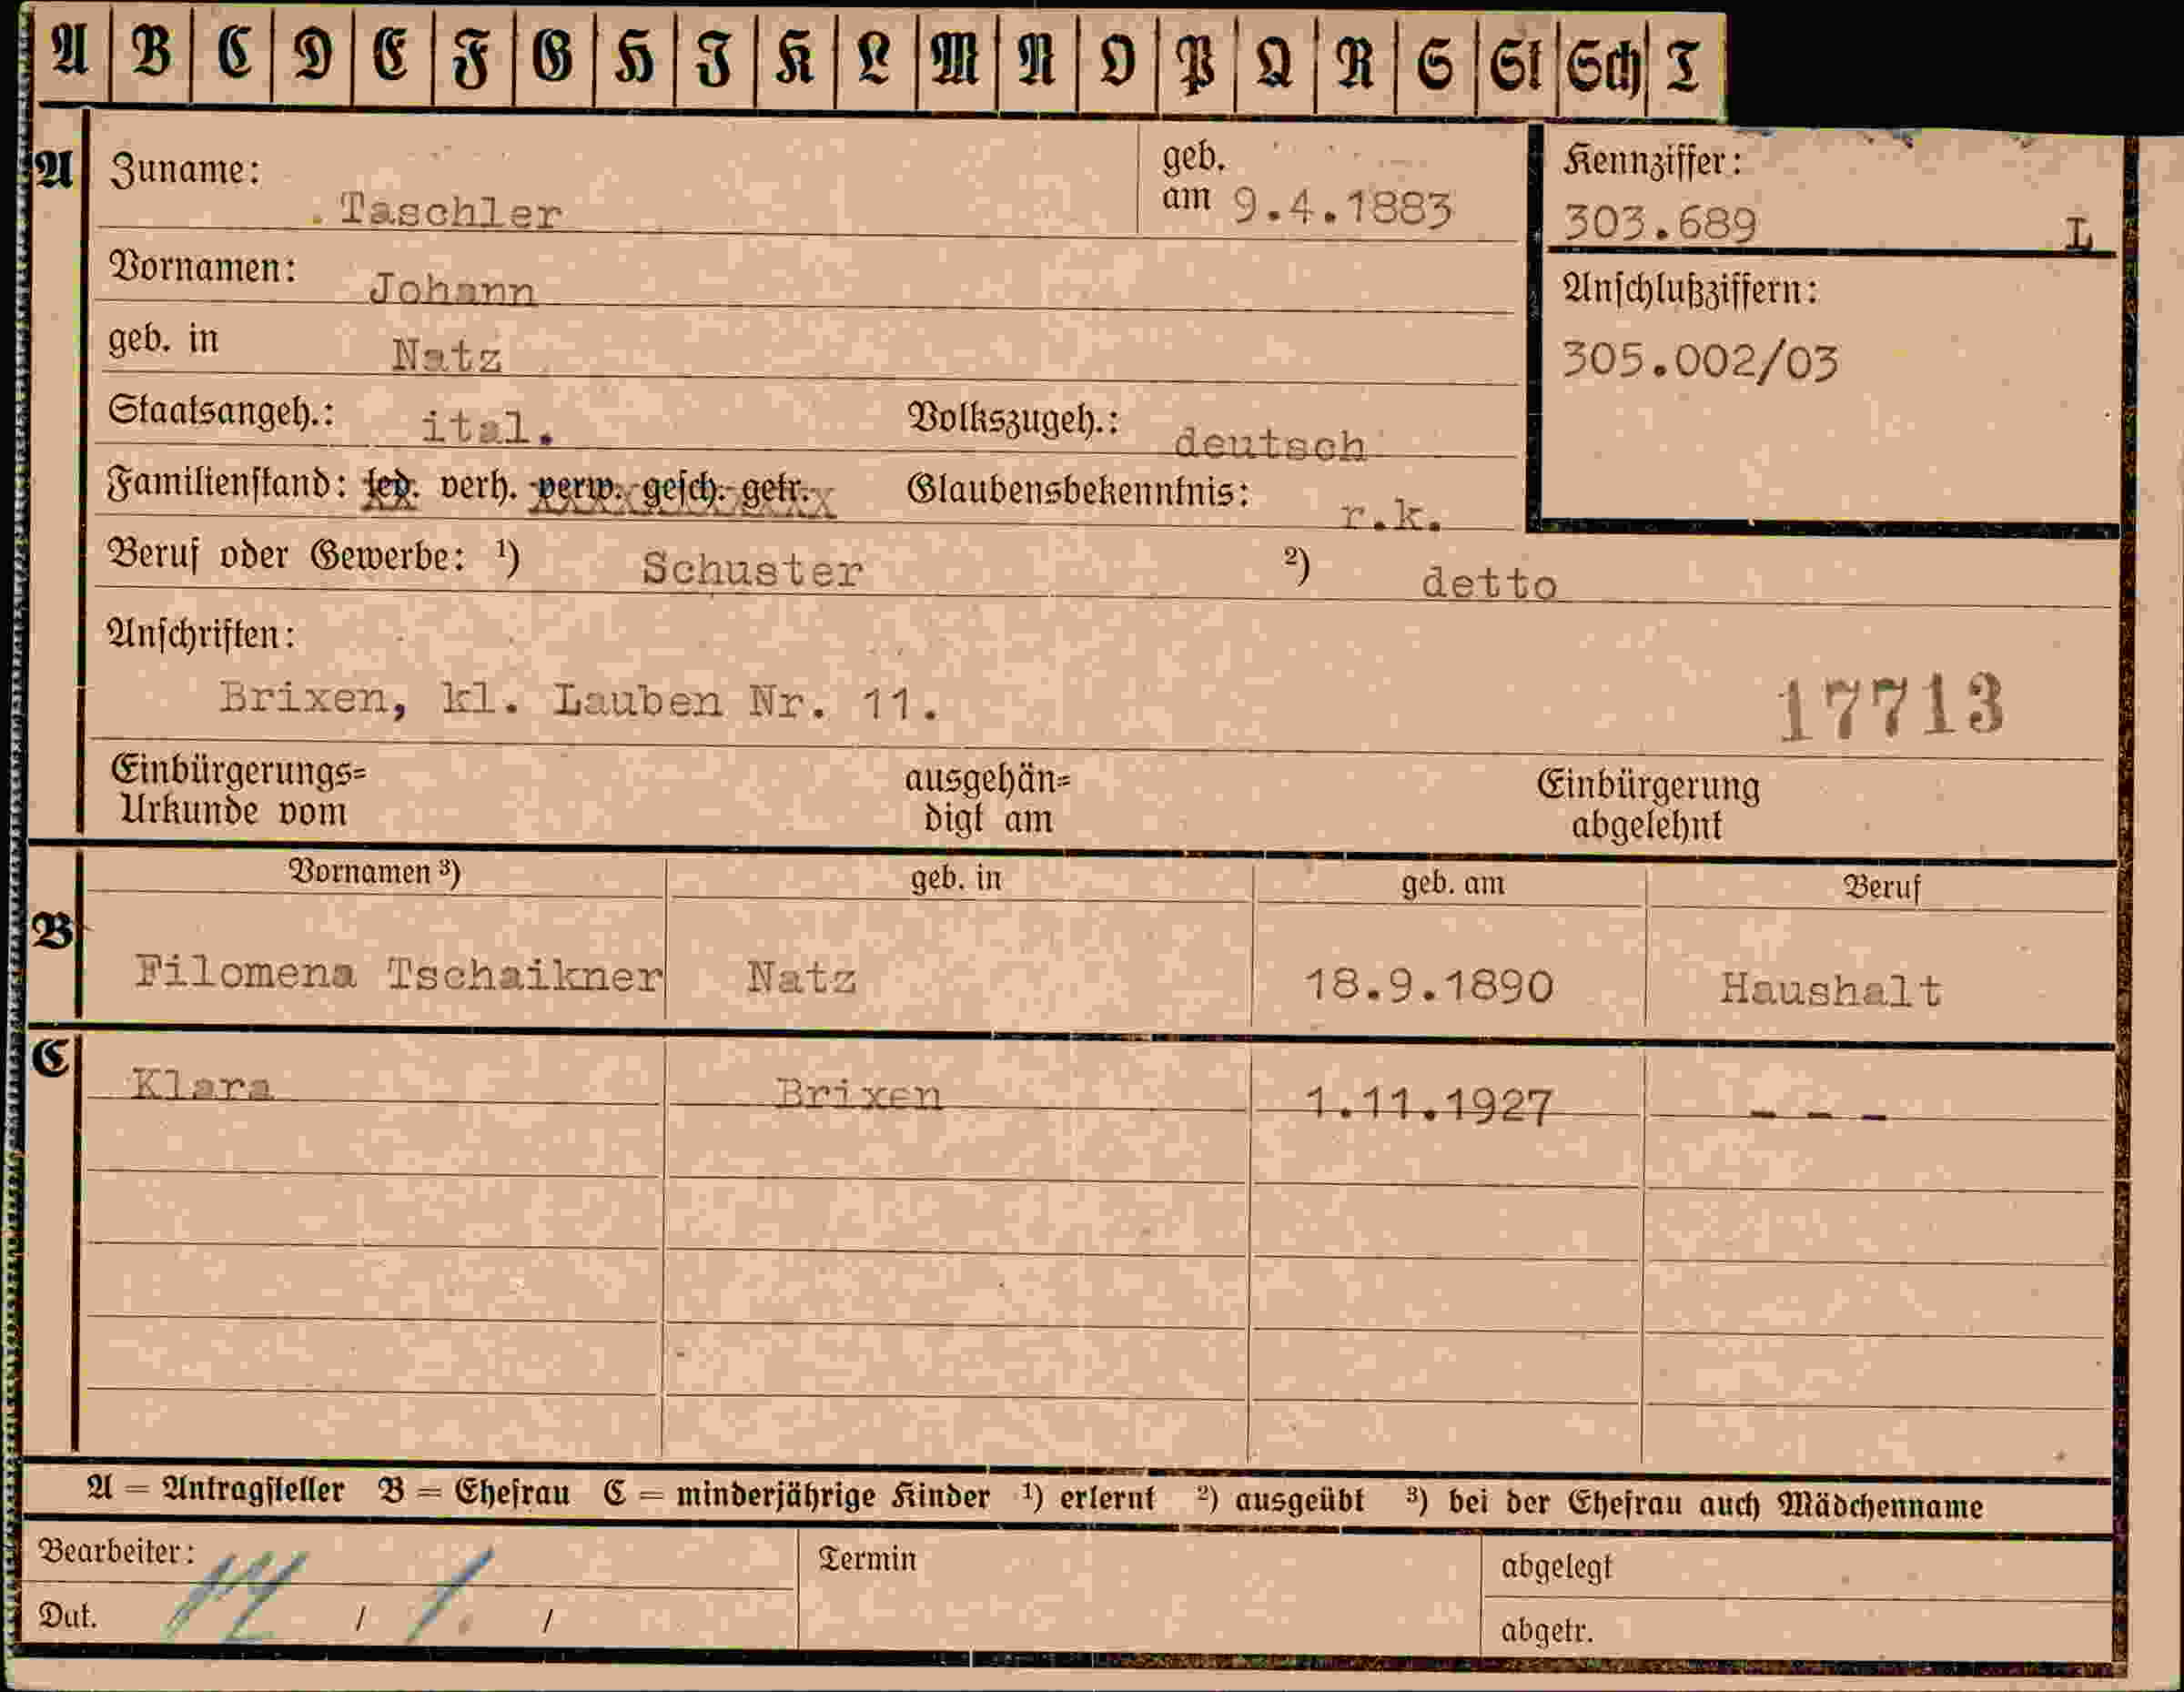 A B C D E F G H I K L M N O P Q R S St Sch T
A Zuname: Taschler geb. am 9.4.1883
Kennziffer: 303.689 L
Vornamen: Johann
Anschlußziffern: 305.002/03
geb. in Natz
Staatsangeh.: ital. Volkszugeh.: deutsch
Familienstand: led. verh. verw. gesch. getr. Glaubensbekenntnis: r.k.
Beruf oder Gewerbe: ¹) Schuster ²) detto
Anschriften:
Brixen, kl. Lauben Nr. 11.
17713
Einbürgerungs=
Urkunde vom
ausgehän=
digt am
Einbürgerung
abgelehnt
Vornamen ³) geb. in geb. am Beruf
B Filomena Tschaikner Natz 18.9.1890 Haushalt
C Klara Brixen 1.11.1927 - - -
A = Antragsteller B = Ehefrau C = minderjährige Kinder ¹) erlernt ²) ausgeübt ³) bei der Ehefrau auch Mädchenname
Bearbeiter:
Termin
abgelegt
Dat. / 1. /
abgetr.